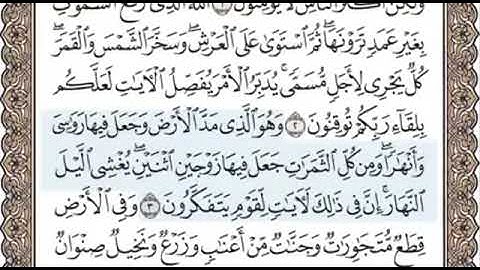 وَلَٰكِنَّ أَكْثَرَ ٱلنَّاسِ لَا يُؤْمِنُونَ ۝١ ٱللَّهُ ٱلَّذِى رَفَعَ ٱلسَّمَٰوَٰتِ
بِغَيْرِ عَمَدٍ تَرَوْنَهَا ۖ ثُمَّ ٱسْتَوَىٰ عَلَى ٱلْعَرْشِ ۖ وَسَخَّرَ ٱلشَّمْسَ وَٱلْقَمَرَ ۖ
كُلٌّ يَجْرِى لِأَجَلٍ مُّسَمًّى ۚ يُدَبِّرُ ٱلْأَمْرَ يُفَصِّلُ ٱلْءَايَٰتِ لَعَلَّكُم
بِلِقَآءِ رَبِّكُمْ تُوقِنُونَ ۝٢ وَهُوَ ٱلَّذِى مَدَّ ٱلْأَرْضَ وَجَعَلَ فِيهَا رَوَٰسِىَ
وَأَنْهَٰرًا ۖ وَمِن كُلِّ ٱلثَّمَرَٰتِ جَعَلَ فِيهَا زَوْجَيْنِ ٱثْنَيْنِ ۖ يُغْشِى ٱلَّيْلَ
ٱلنَّهَارَ ۚ إِنَّ فِى ذَٰلِكَ لَءَايَٰتٍ لِّقَوْمٍ يَتَفَكَّرُونَ ۝٣ وَفِى ٱلْأَرْضِ
قِطَعٌ مُّتَجَٰوِرَٰتٌ وَجَنَّٰتٌ مِّنْ أَعْنَٰبٍ وَزَرْعٌ وَنَخِيلٌ صِنْوَانٌ